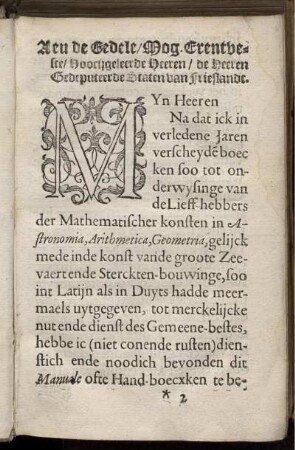 Aen de Gedele/Mog. Erentve-
ste/Voorsz geleerde Heeren/de Heeren
Gedeputeerde Staten van Frieslandt.
MYn Heeren
Na dat ick in
verledene Jaren
verscheydē boec
ken soo tot on-
derwysinge van
de Lieff-hebbers
der Mathematischer konsten in A-
stronomia, Arithmetica, Geometria, gelijck
mede inde konst vande groote Zee-
vaert ende Sterckten-bouwinge, soo
int Latijn als in Duyts hadde meer-
maels uytgegeven, tot merckelijcke
nut ende dienst des Gemeene-bestes,
hebbe ic (niet conende rusten) dien-
stich ende noodich bevonden dit
Manuale ofte Hand-boecxken te be-
* 2